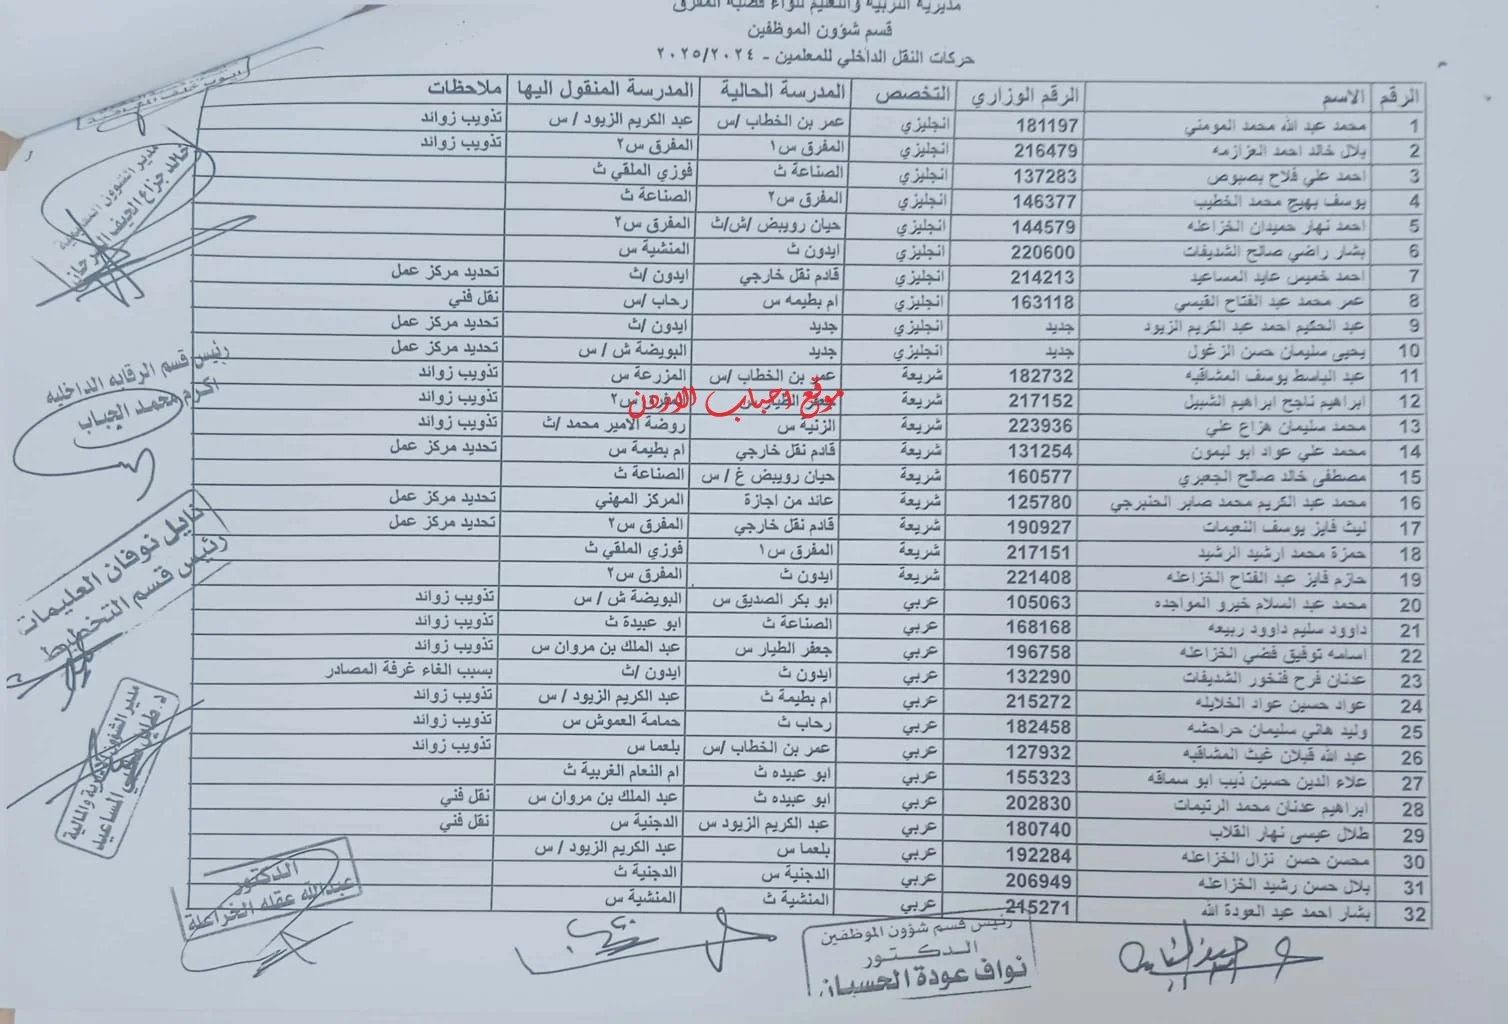 مديرية التربية والتعليم للواء قصبة المفرق
قسم شؤون الموظفين
حركات النقل الداخلي للمعلمين - ٢٠٢٥/٢٠٢٤
الرقم الاسم الرقم الوزاري التخصص المدرسة الحالية المدرسة المنقول اليها ملاحظات
1 محمد عبد الله محمد المومني 181197 انجليزي عمر بن الخطاب /س عبد الكريم الزيود / س تذويب زوائد
2 بلال خالد احمد العزازمه 216479 انجليزي المفرق س١ المفرق س٢ تذويب زوائد
3 احمد علي فلاح بصبوص 137283 انجليزي الصناعة ث فوزي الملقي ث
4 يوسف بهيج محمد الخطيب 146377 انجليزي المفرق س٢ الصناعة ث
5 احمد نهار حميدان الخزاعله 144579 انجليزي حيان رويبض /ش/ث المفرق س٢
6 بشار راضي صالح الشديفات 220600 انجليزي ايدون ث المنشية س
7 احمد خميس عايد المساعيد 214213 انجليزي قادم نقل خارجي ايدون /ث تحديد مركز عمل
8 عمر محمد عبد الفتاح القيسي 163118 انجليزي ام بطيمه س رحاب /س نقل فني
9 عبد الحكيم احمد عبد الكريم الزيود جديد انجليزي جديد ايدون /ث تحديد مركز عمل
10 يحيى سليمان حسن الزغول جديد انجليزي جديد البويضة ش / س تحديد مركز عمل
11 عبد الباسط يوسف المشاقبه 182732 شريعة عمر بن الخطاب /س المزرعة س تذويب زوائد
12 ابراهيم ناجح ابراهيم الشبيل 217152 شريعة جعفر الطيار س المفرق س٢ تذويب زوائد
موقع احباب الاردن
13 محمد سليمان هزاع علي 223936 شريعة الزنية س روضة الامير محمد /ث تذويب زوائد
14 محمد علي عواد ابو ليمون 131254 شريعة قادم نقل خارجي ام بطيمة س تحديد مركز عمل
15 مصطفى خالد صالح الجعبري 160577 شريعة حيان رويبض غ / س الصناعة ث
16 محمد عبد الكريم محمد صابر الحنبرجي 125780 شريعة عائد من اجازة المركز المهني تحديد مركز عمل
17 ليث فايز يوسف النعيمات 190927 شريعة قادم نقل خارجي المفرق س٢ تحديد مركز عمل
18 حمزة محمد ارشيد الرشيد 217151 شريعة المفرق س١ فوزي الملقي ث
19 حازم فايز عبد الفتاح الخزاعله 221408 شريعة ايدون ث المفرق س٢
20 محمد عبد السلام خيرو المواجده 105063 عربي ابو بكر الصديق س البويضة ش / س تذويب زوائد
21 داوود سليم داوود ربيعه 168168 عربي الصناعة ث ابو عبيدة ث تذويب زوائد
22 اسامه توفيق فضي الخزاعله 196758 عربي جعفر الطيار س عبد الملك بن مروان س تذويب زوائد
23 عدنان فرح فنخور الشديفات 132290 عربي ايدون ث ايدون /ث بسبب الغاء غرفة المصادر
24 عواد حسين عواد الخلايله 215272 عربي ام بطيمة ث عبد الكريم الزيود / س تذويب زوائد
25 وليد هاني سليمان حراحشه 182458 عربي رحاب ث حمامة العموش س تذويب زوائد
26 عبد الله قبلان غيث المشاقبه 127932 عربي عمر بن الخطاب /س بلعما س تذويب زوائد
27 علاء الدين حسين ذيب ابو سماقه 155323 عربي ابو عبيده ث ام النعام الغربية ث
28 ابراهيم عدنان محمد الرتيمات 202830 عربي ابو عبيده ث عبد الملك بن مروان س نقل فني
29 طلال عيسى نهار القلاب 180740 عربي عبد الكريم الزيود س الدجنية س نقل فني
30 محسن حسن نزال الخزاعله 192284 عربي بلعما س عبد الكريم الزيود / س
31 بلال حسن رشيد الخزاعله 206949 عربي الدجنية س الدجنية ث
32 بشار احمد عبد العودة الله 215271 عربي المنشية ث المنشية س
مدير الشؤون التعليمية
خالد جزاع الحيف السرحان
رئيس قسم الرقابه الداخليه
اكرم محمد الجباب
نايل نوفان العليمات
رئيس قسم التخطيط
مدير الشؤون الادارية والمالية
الدكتور
عبدالله عقله الخزاعلة
رئيس قسم شؤون الموظفين
الدكتور
نواف عودة الحسبان